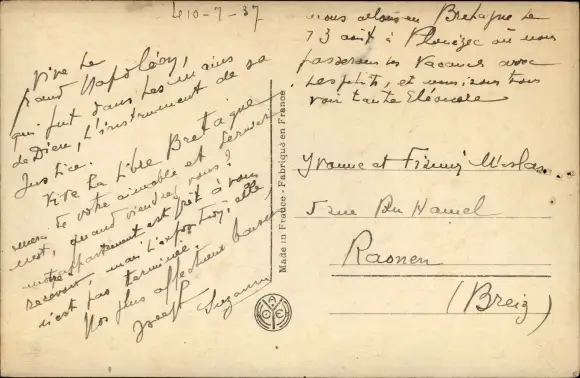 10-7-37
Vive le
grand Napoléon,
qui fut dans les mains
de Dieu, l'instrument de sa
Justice.
Vive la libre Bretagne
de votre aimable et dernier
mot, quand viendrez vous?
appartement est prêt à vous
recevoir, mais l'expo, elle
n'est pas terminée.
Nos plus affectueux baisers
Joseph Suzanne
nous allons en Bretagne le
13 août à Plouézec où nous
passerons les vacances avec
les petits, et nous irons tous
voir tante Eléonore
Yvonne et
5 rue Du Hamel
Raonen
(Breiz)
Made in France - Fabriqué en France